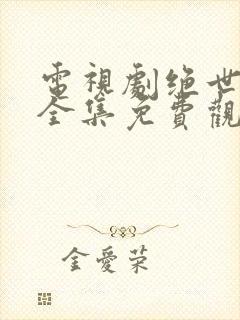 電視劇绝世
全集免費觀
金愛荣